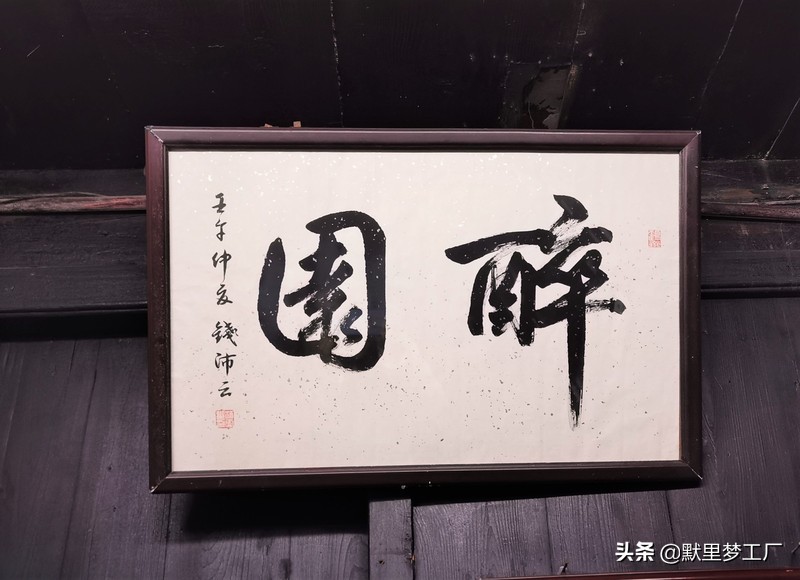 醉園
壬午仲夏 錢沛云
头条 @默里梦工厂